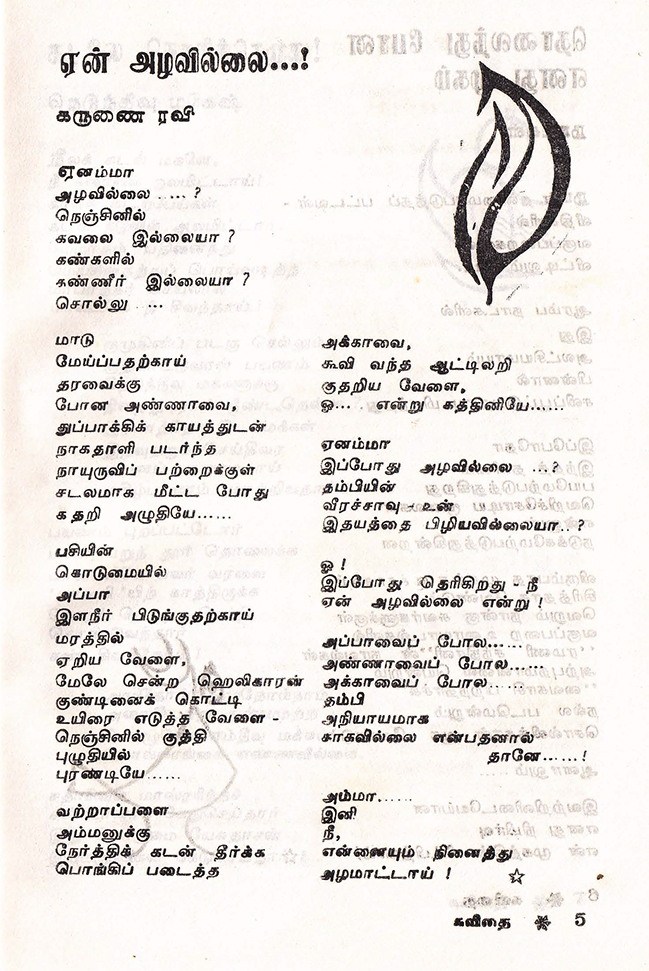 ஏன் அழவில்லை...!
கருணை ரவி
ஏனம்மா
அழவில்லை ..... ?
நெஞ்சினில்
கவலை இல்லையா ?
கண்களில்
கண்ணீர் இல்லையா ?
சொல்லு ....
மாடு
மேய்ப்பதற்காய்
தரவைக்கு
போன அண்ணாவை,
துப்பாக்கிக் காயத்துடன்
நாகதாளி படர்ந்த
நாயுருவிப் பற்றைக்குள்
சடலமாக மீட்ட போது
கதறி அழுதியே......
பசியின்
கொடுமையில்
அப்பா
இளநீர் பிடுங்குதற்காய்
மரத்தில்
ஏறிய வேளை,
மேலே சென்ற ஹெலிகாரன்
குண்டினைக் கொட்டி
உயிரை எடுத்த வேளை -
நெஞ்சினில் குத்தி
புழுதியில்
புரண்டியே......
வற்றாப்பளை
அம்மனுக்கு
நேர்த்திக் கடன் தீர்க்க
பொங்கிப் படைத்த
அக்காவை,
கூவி வந்த ஆட்டிலறி
குதறிய வேளை,
ஓ... என்று கத்தினியே......
ஏனம்மா
இப்போது அழவில்லை ...?
தம்பியின்
வீரச்சாவு - உன்
இதயத்தை பிழியவில்லையா..?
ஓ !
இப்போது தெரிகிறது - நீ
ஏன் அழவில்லை என்று !
அப்பாவைப் போல......
அண்ணாவைப் போல......
அக்காவைப் போல......
தம்பி
அநியாயமாக
சாகவில்லை என்பதனால்
தானே......!
அம்மா......
இனி
நீ,
என்னையும் நினைத்து
அழமாட்டாய் !
கவிதை ❋ 5